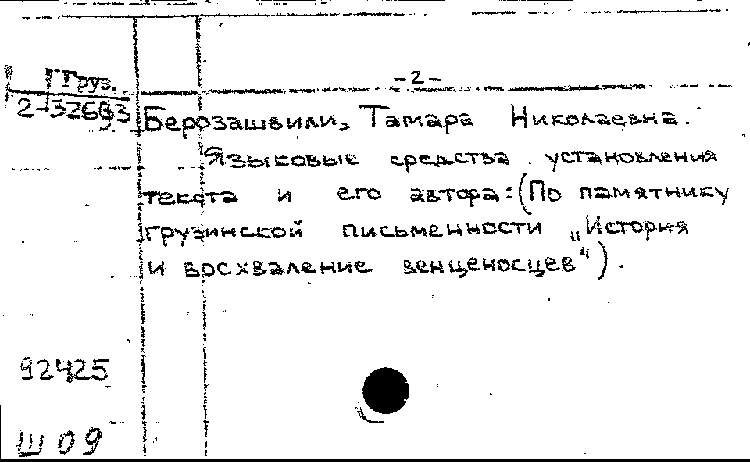 - 2 -
Груз.
2-32683
Берозашвили, Тамара Николаевна.
Языковые средства установления
текста и его автора: (По памятнику
грузинской письменности „История
и восхваление венценосцев“).
92425
Ш 09